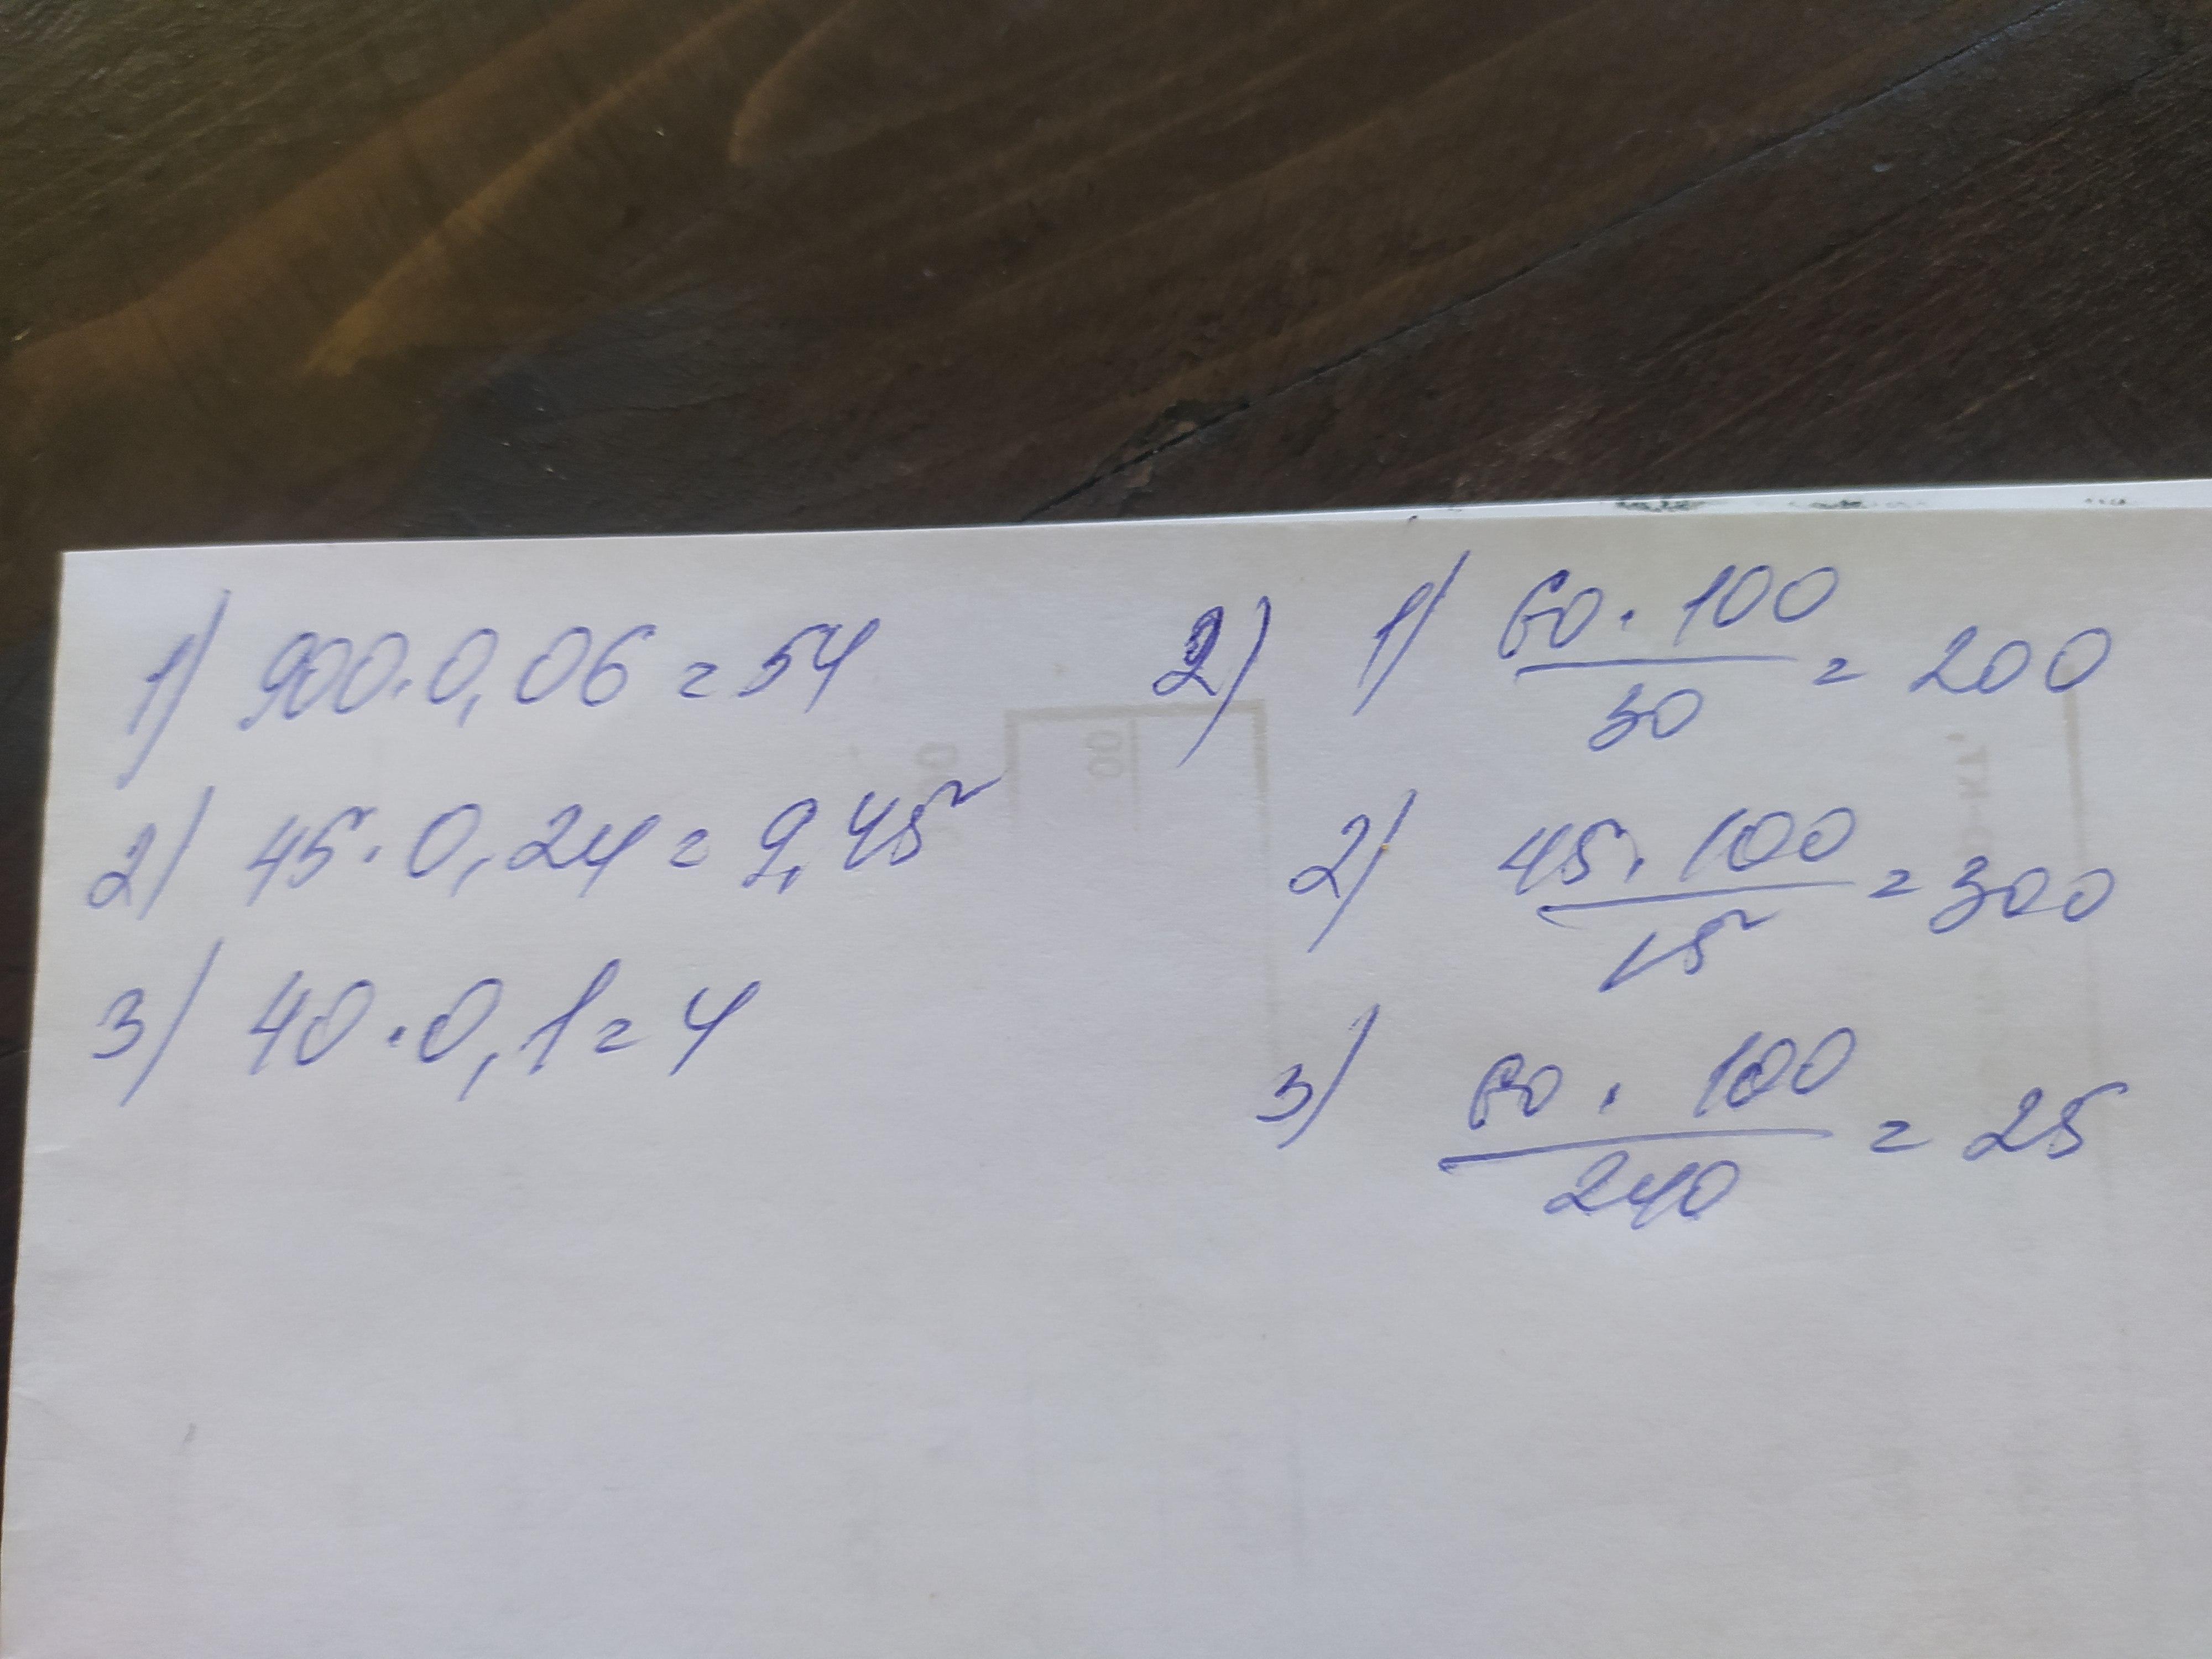 1) 900·0,06=54
2) 45·0,24=9,45
3) 40·0,1=4
2) 1) 60·100/30=200
2) 45·100/15=300
3) 60·100/240=25